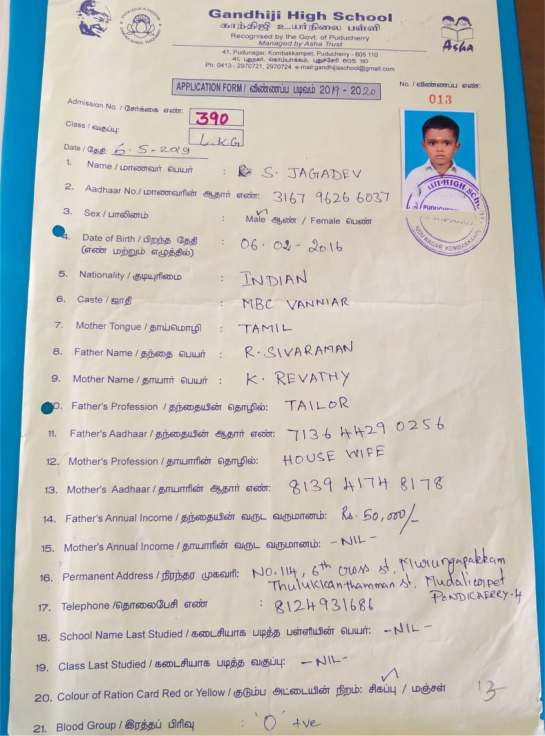 Gandhiji High School
காந்திஜி உயர்நிலை பள்ளி
Recognised by the Govt. of Puducherry
Managed by Asha Trust
41, Pudunagar, Kombakkampet, Puducherry - 605 110
Ph: 0413 - 2970721, 2970724 e-mail:gandhijisschool@gmail.com
Asha
APPLICATION FORM / விண்ணப்ப படிவம் 2019 - 2020
No. / விண்ணப்ப எண்:
013
Admission No. / சேர்க்கை எண்: 390
Class / வகுப்பு: L.K.G
Date / தேதி: 6.5-2019
1. Name / மாணவர் பெயர் : S. JAGADEV
2. Aadhaar No./ மாணவரின் ஆதார் எண்: 3167 9626 6037
3. Sex / பாலினம் : Male ஆண் / Female பெண்
4. Date of Birth / பிறந்த தேதி : 06.02-2016
(எண் மற்றும் எழுத்தில்)
5. Nationality / குடியுரிமை : INDIAN
6. Caste / ஜாதி : MBC VANNIAR
7. Mother Tongue / தாய்மொழி : TAMIL
8. Father Name / தந்தை பெயர் : R. SIVARAMAN
9. Mother Name / தாயார் பெயர் : K. REVATHY
0. Father's Profession / தந்தையின் தொழில்: TAILOR
11. Father's Aadhaar / தந்தையின் ஆதார் எண்: 7136 4429 0256
12. Mother's Profession / தாயாரின் தொழில்: HOUSE WIFE
13. Mother's Aadhaar / தாயாரின் ஆதார் எண்: 8139 4174 8178
14. Father's Annual Income / தந்தையின் வருட வருமானம்: Rs. 50,000/-
15. Mother's Annual Income / தாயாரின் வருட வருமானம்: - NIL -
16. Permanent Address / நிரந்தர முகவரி: NO.114, 6th cross st. Murungapakkam
Thulukkanthamman st. Mudaliarpet
PONDICHERRY-4
17. Telephone /தொலைபேசி எண் : 8124931686
18. School Name Last Studied / கடைசியாக படித்த பள்ளியின் பெயர்: -NIL-
19. Class Last Studied / கடைசியாக படித்த வகுப்பு: -NIL-
20. Colour of Ration Card Red or Yellow / குடும்ப அட்டையின் நிறம்: சிகப்பு / மஞ்சள்
13
21. Blood Group / இரத்தப் பிரிவு : 'O' +ve